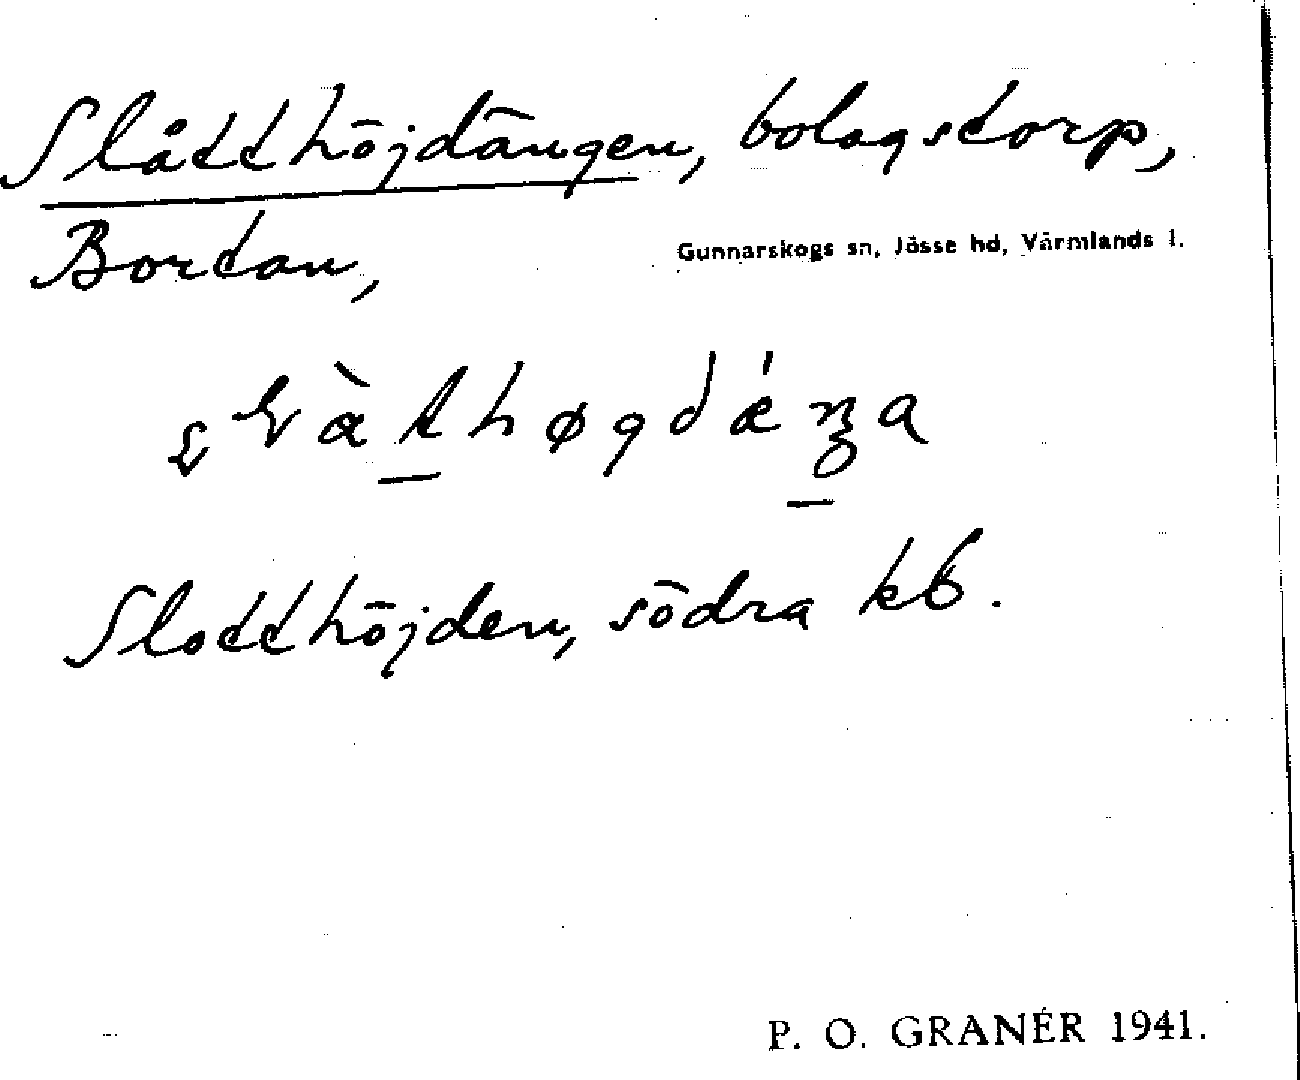 Slåtthöjdängen, bolagstorp,
Bortan,
Gunnarskogs sn, Jösse hd, Värmlands l.
Slotthöjden, södra kb.
P. O. GRANÉR 1941.